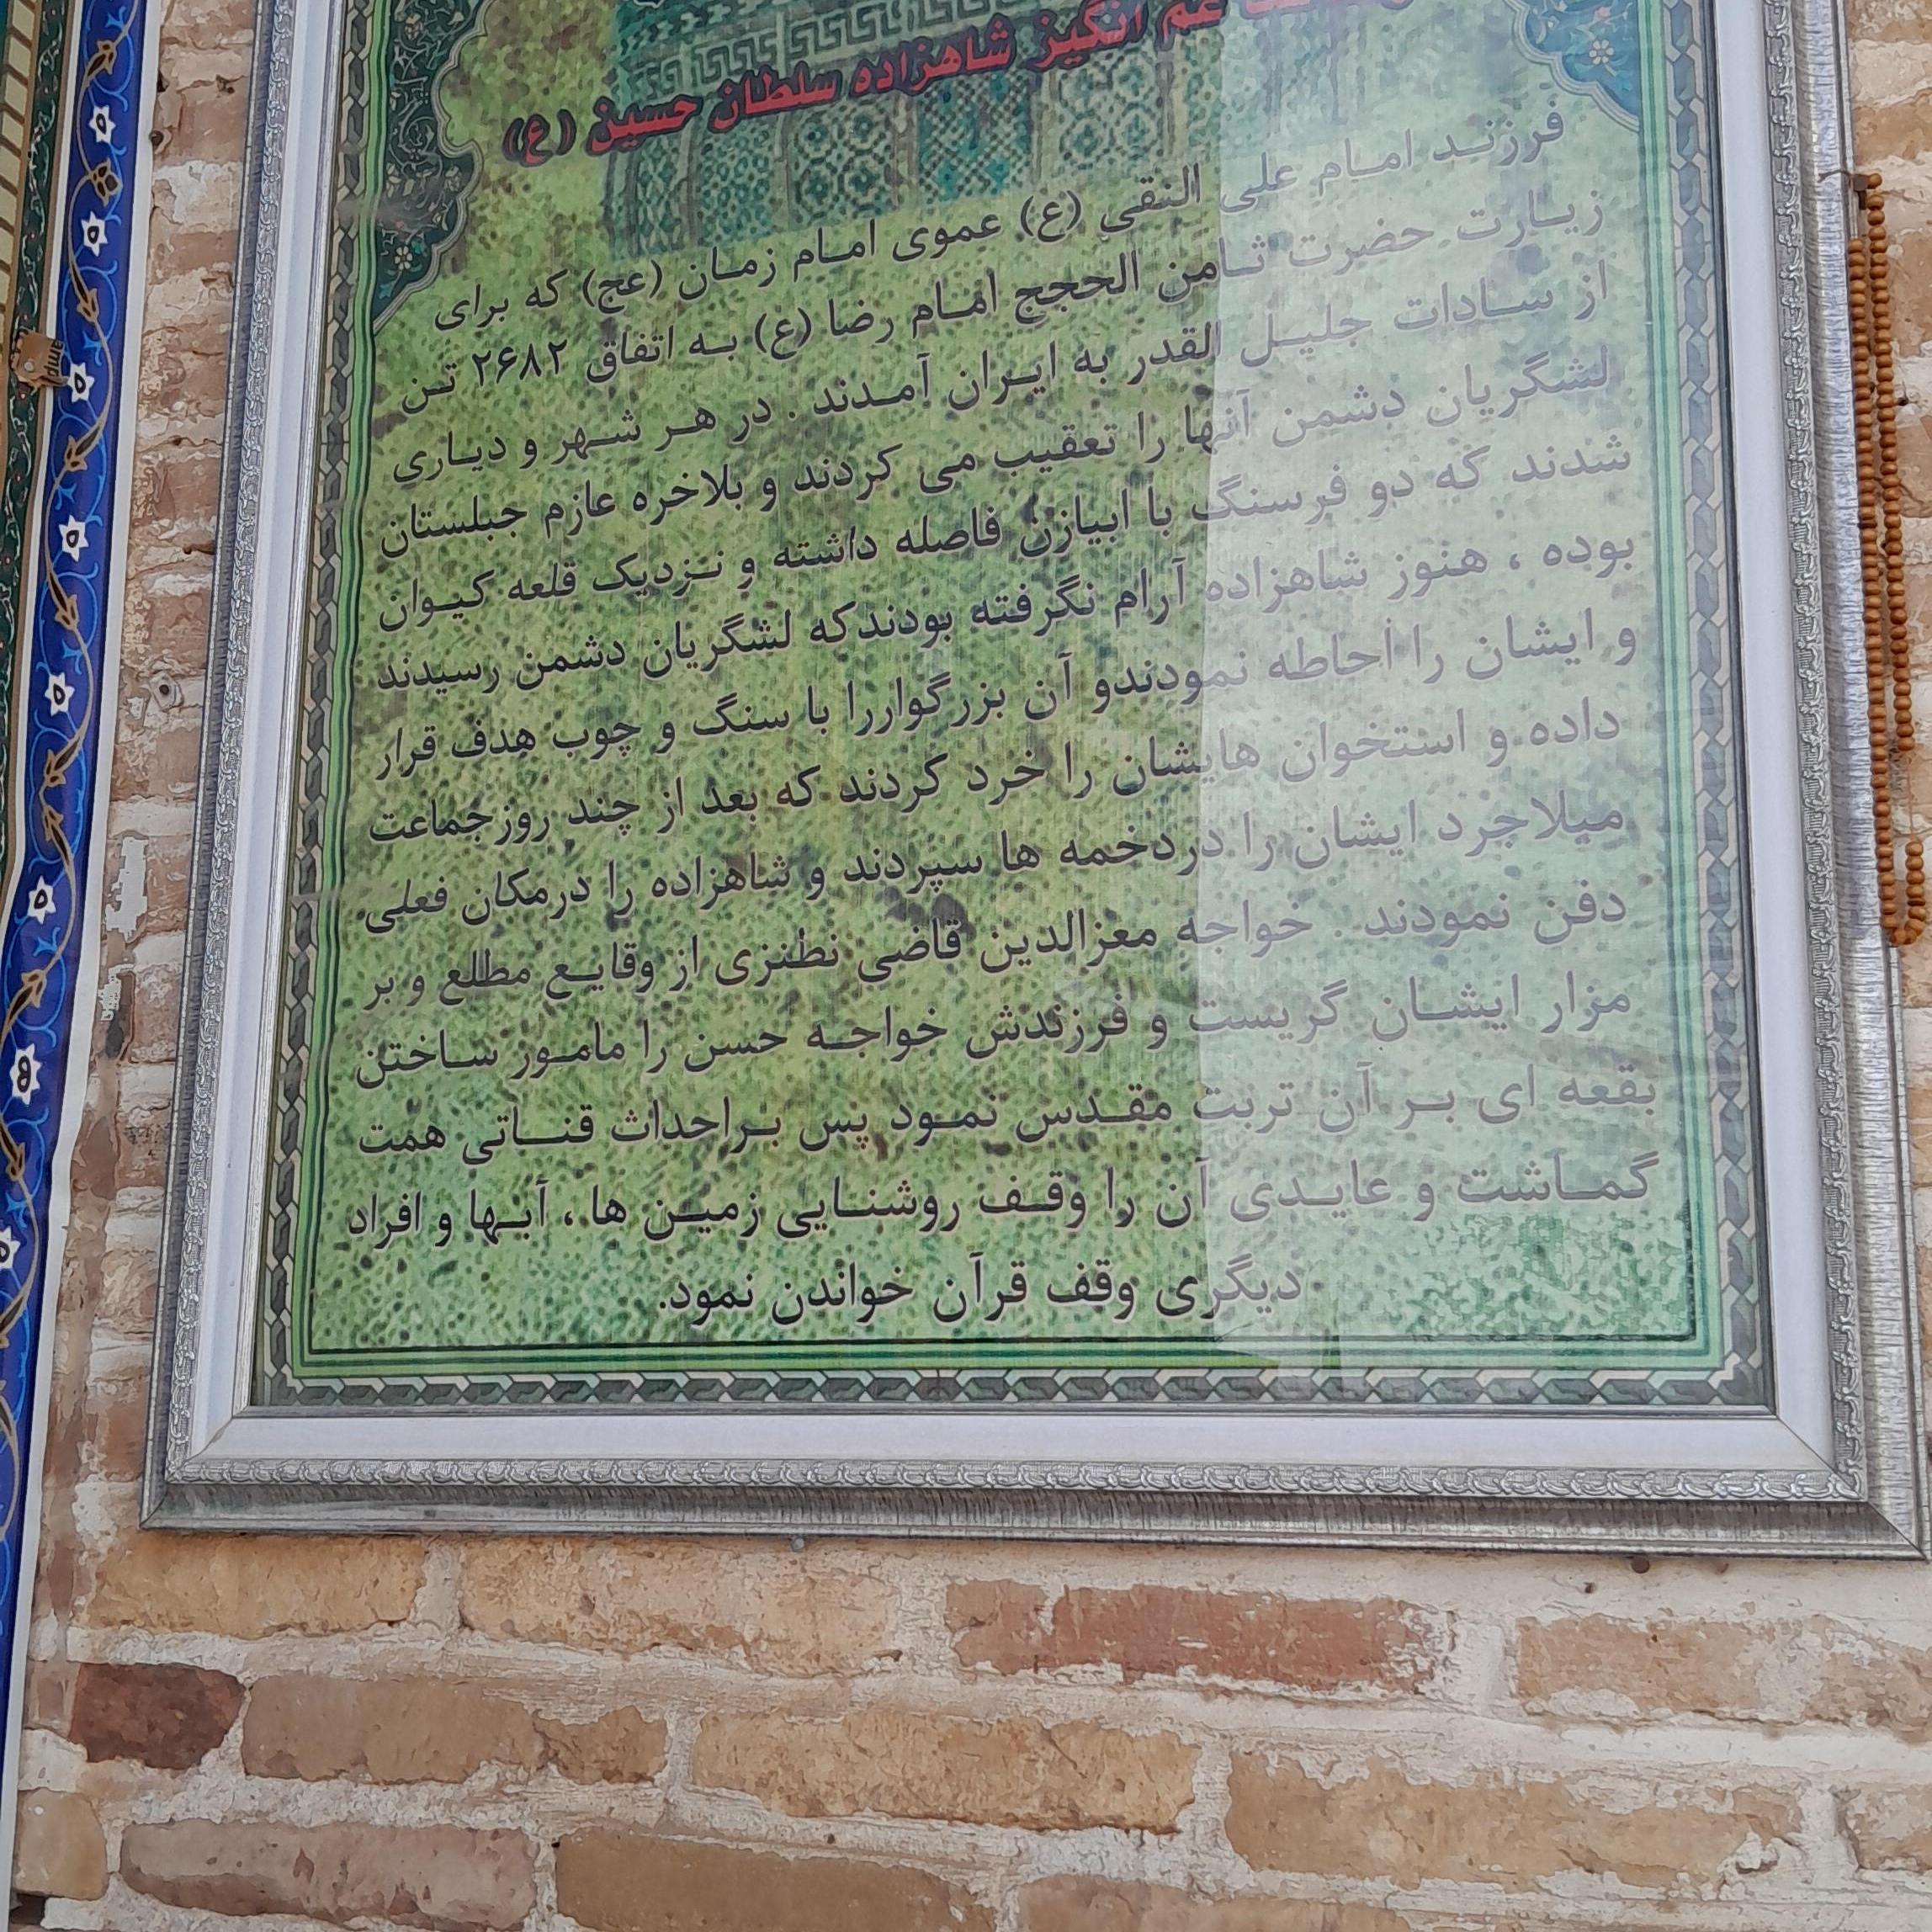 غم انگیز شاهزاده سلطان حسین (ع)
فرزند امام علی النقی (ع) عموی امام زمان (عج) که برای
زیارت حضرت ثامن الحجج امام رضا (ع) به اتفاق ۲۶۸۲ تن
از سادات جلیل القدر به ایران آمدند . در هر شهر و دیاری
لشگریان دشمن آنها را تعقیب می کردند و بلاخره عازم جبلستان
شدند که دو فرسنگ با ابیازن فاصله داشته و نزدیک قلعه کیوان
بوده ، هنوز شاهزاده آرام نگرفته بودندکه لشگریان دشمن رسیدند
و ایشان را احاطه نمودندو آن بزرگواررا با سنگ و چوب هدف قرار
داده و استخوان هایشان را خرد کردند که بعد از چند روزجماعت
میلاجرد ایشان را دردخمه ها سپردند و شاهزاده را درمکان فعلی
دفن نمودند . خواجه معزالدین قاضی نطنزی از وقایع مطلع و بر
مزار ایشان گریست و فرزندش خواجه حسن را مامور ساختن
بقعه ای بر آن تربت مقدس نمود پس براحداث قناتی همت
گماشت و عایدی آن را وقف روشنایی زمین ها، آبها و افراد
دیگری وقف قرآن خواندن نمود.